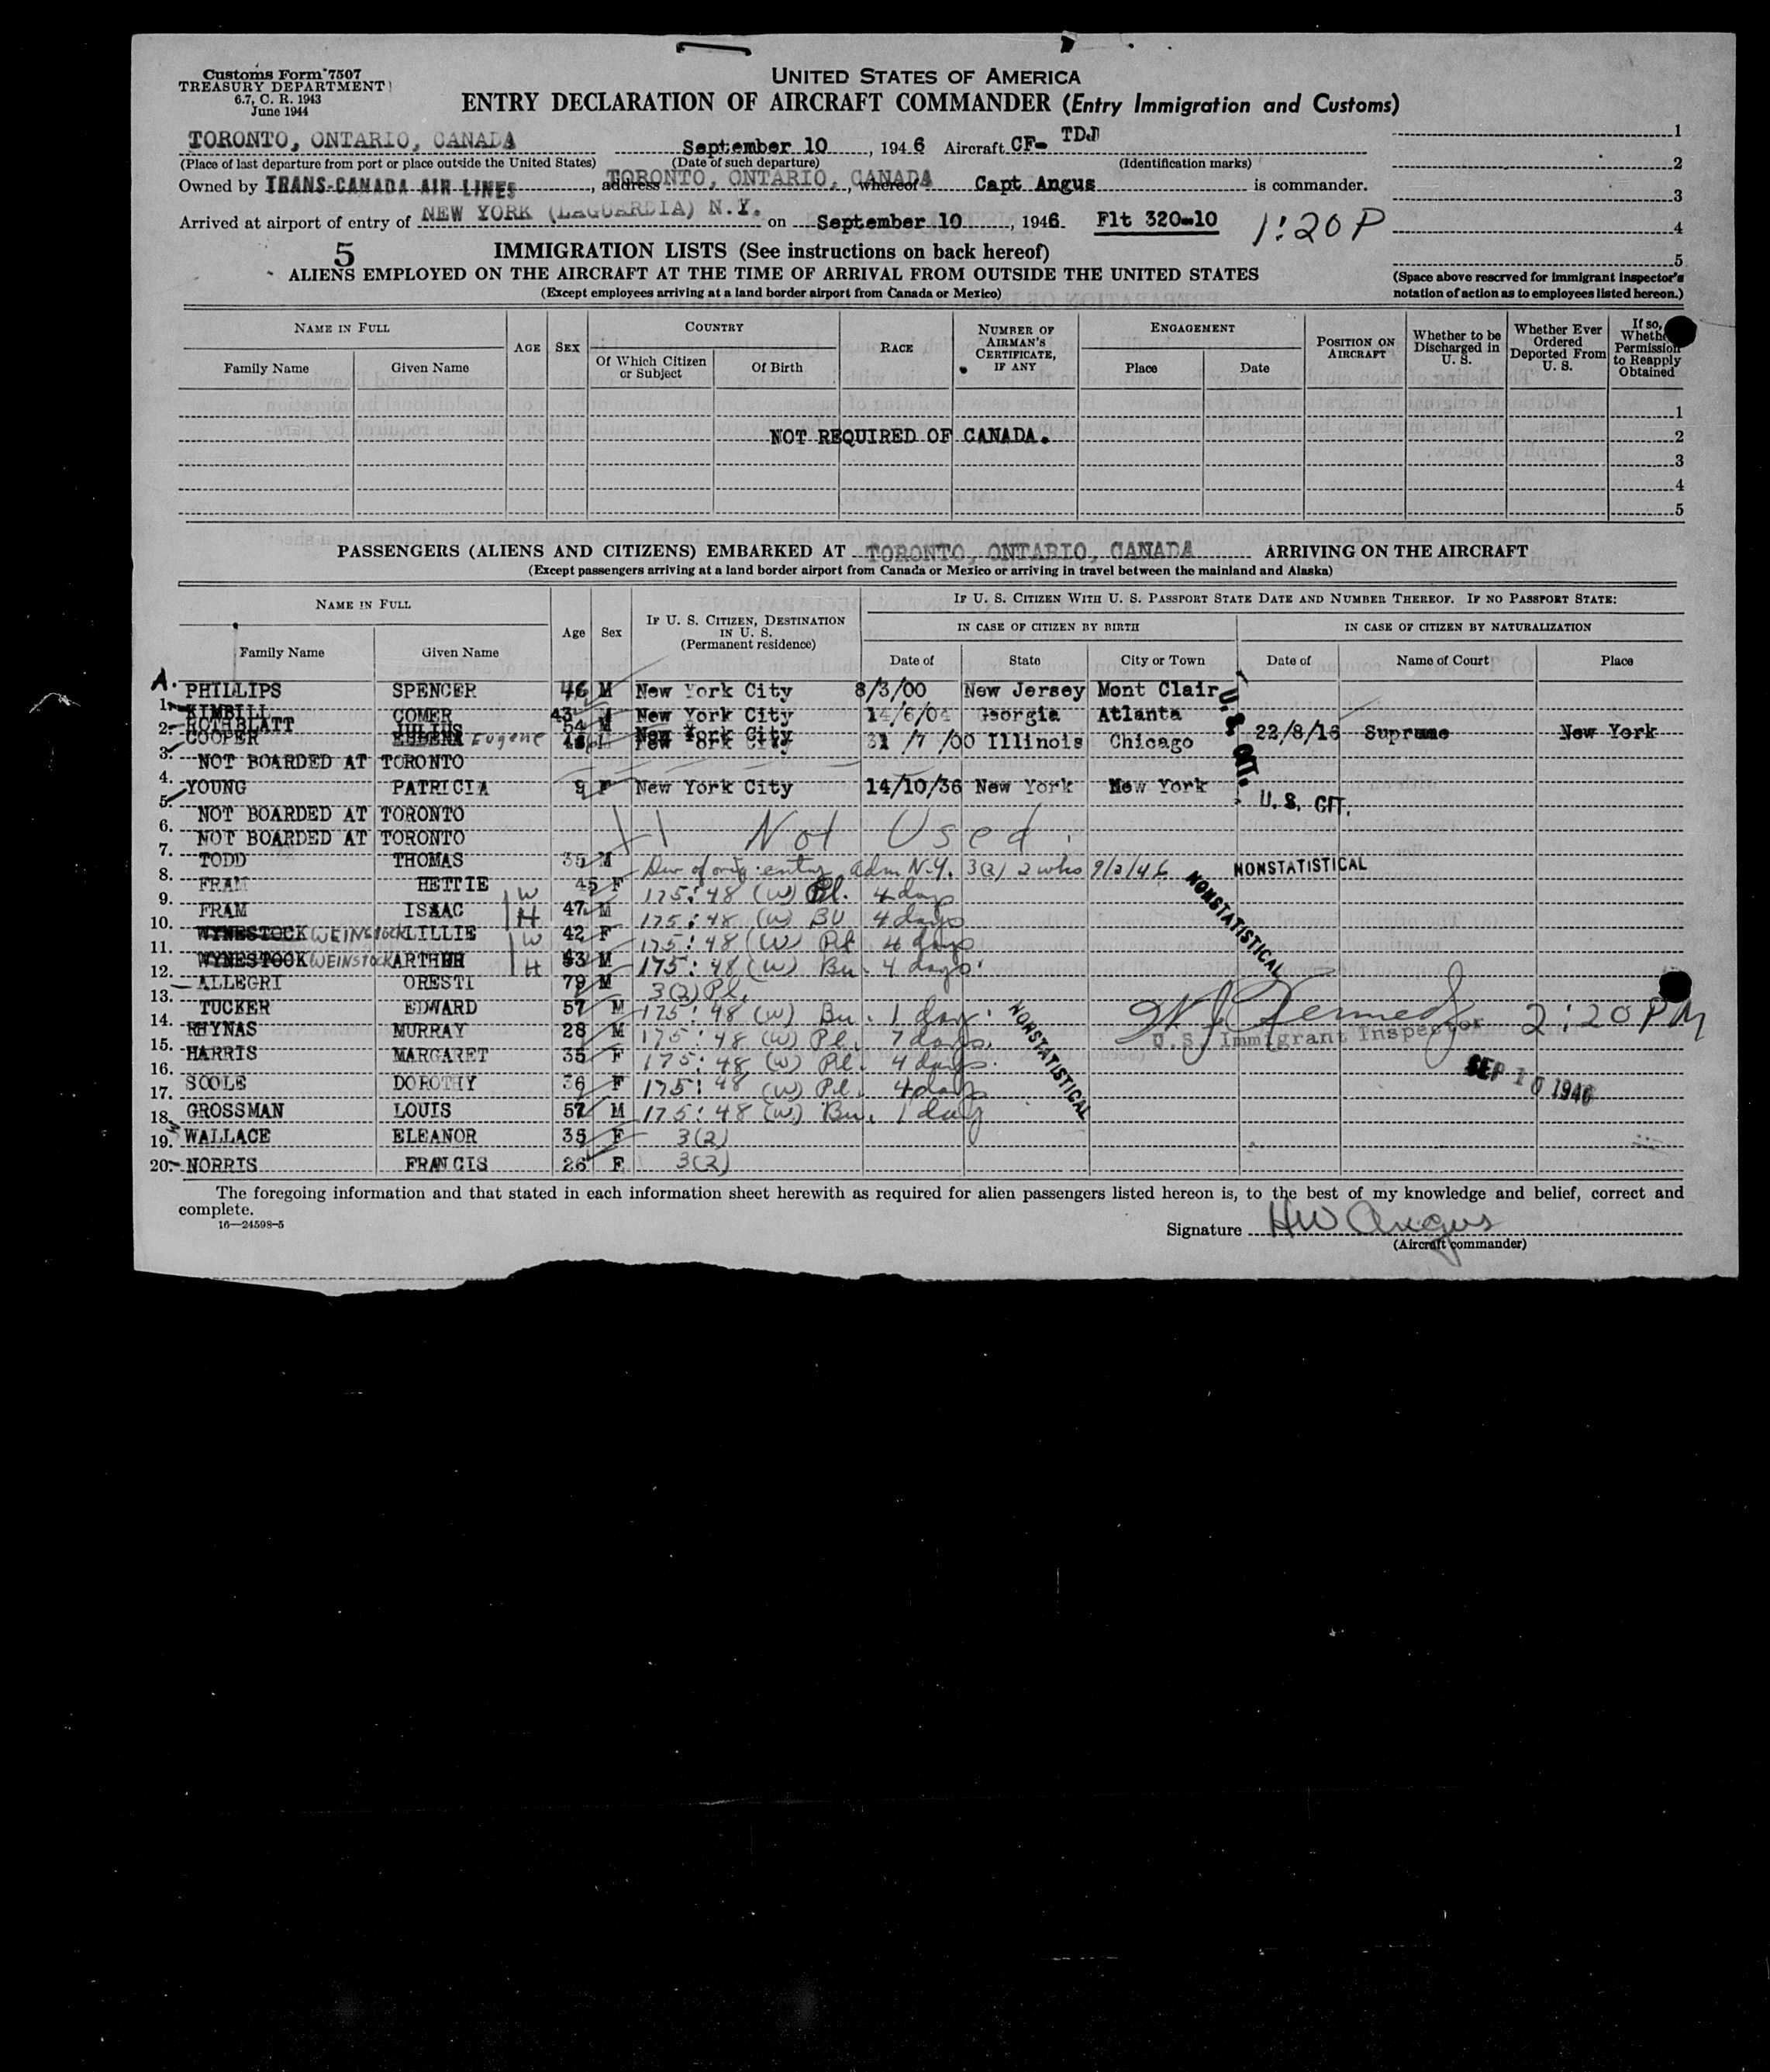 Customs Form 7507
TREASURY DEPARTMENT
6.7, C. R. 1943
June 1944
UNITED STATES OF AMERICA
ENTRY DECLARATION OF AIRCRAFT COMMANDER (Entry Immigration and Customs)
TORONTO, ONTARIO, CANADA September 10, 1946 Aircraft CF- TDJ 1
(Place of last departure from port or place outside the United States) (Date of such departure) (Identification marks) 2
Owned by TRANS-CANADA AIR LINES, address TORONTO, ONTARIO, CANADA, whereof Capt Angus is commander. 3
Arrived at airport of entry of NEW YORK (LAGUARDIA) N.Y. on September 10, 1946 Flt 320-10 1:20 P 4
5 IMMIGRATION LISTS (See instructions on back hereof) 5
ALIENS EMPLOYED ON THE AIRCRAFT AT THE TIME OF ARRIVAL FROM OUTSIDE THE UNITED STATES
(Except employees arriving at a land border airport from Canada or Mexico)
(Space above reserved for immigrant inspector's notation of action as to employees listed hereon.)
NAME IN FULL AGE SEX COUNTRY RACE NUMBER OF AIRMAN'S CERTIFICATE, IF ANY ENGAGEMENT POSITION ON AIRCRAFT Whether to be Discharged in U. S. Whether Ever Ordered Deported From U. S. If so, Whether Permission to Reapply Obtained
Family Name Given Name Of Which Citizen or Subject Of Birth Place Date
1
NOT REQUIRED OF CANADA. 2
3
4
5
PASSENGERS (ALIENS AND CITIZENS) EMBARKED AT TORONTO, ONTARIO, CANADA ARRIVING ON THE AIRCRAFT
(Except passengers arriving at a land border airport from Canada or Mexico or arriving in travel between the mainland and Alaska)
NAME IN FULL Age Sex IF U. S. CITIZEN, DESTINATION IN U. S. (Permanent residence) IF U. S. CITIZEN WITH U. S. PASSPORT STATE DATE AND NUMBER THEREOF. IF NO PASSPORT STATE:
IN CASE OF CITIZEN BY BIRTH IN CASE OF CITIZEN BY NATURALIZATION
Family Name Given Name Date of State City or Town Date of Name of Court Place
A. PHILLIPS SPENCER 46 M New York City 8/3/00 New Jersey Mont Clair
1. KIMBILL COMER 43 M New York City 14/6/04 Georgia Atlanta U. S. CIT.
2. ROTHBLATT JULIUS 54 M New York City 22/8/16 Supreme New York
3. COOPER Eugene New York City 31/7/00 Illinois Chicago
NOT BOARDED AT TORONTO
4.
5. YOUNG PATRICIA 9 F New York City 14/10/36 New York New York U. S. CIT.
6. NOT BOARDED AT TORONTO Not Used.
7. NOT BOARDED AT TORONTO
8. TODD THOMAS 35 M of orig. entry adm N.Y. 3(2) 2 wks 9/2/46 NONSTATISTICAL
9. FRAM HETTIE W 45 F 175:48 (W) Pl. 4 days
10. FRAM ISAAC H 47 M 175:48 (W) BU 4 days NONSTATISTICAL
11. WYNESTOCK WEINSTOCK LILLIE W 42 F 175:48 (W) Pl 4 days
12. WYNESTOCK WEINSTOCK ARTHUR H 53 M 175:48 (W) Bu. 4 days
13. ALLEGRI ORESTI 79 M 3(2) Pl.
14. TUCKER EDWARD 57 M 175:48 (W) Bu. 1 day
15. RHYNAS MURRAY 28 M 175:48 (W) Pl. 7 days. NONSTATISTICAL U. S. Immigrant Inspector 2:20 PM
16. HARRIS MARGARET 35 F 175:48 (W) Pl. 4 days. SEP 10 1946
17. SOOLE DOROTHY 36 F 175:48 (W) Pl. 4 days
18. GROSSMAN LOUIS 57 M 175:48 (W) Bu. 1 day
19. WALLACE ELEANOR 35 F 3(2)
20. NORRIS FRANCIS 26 F 3(2)
The foregoing information and that stated in each information sheet herewith as required for alien passengers listed hereon is, to the best of my knowledge and belief, correct and
complete.
16—24598-5
Signature HW Angus
(Aircraft commander)